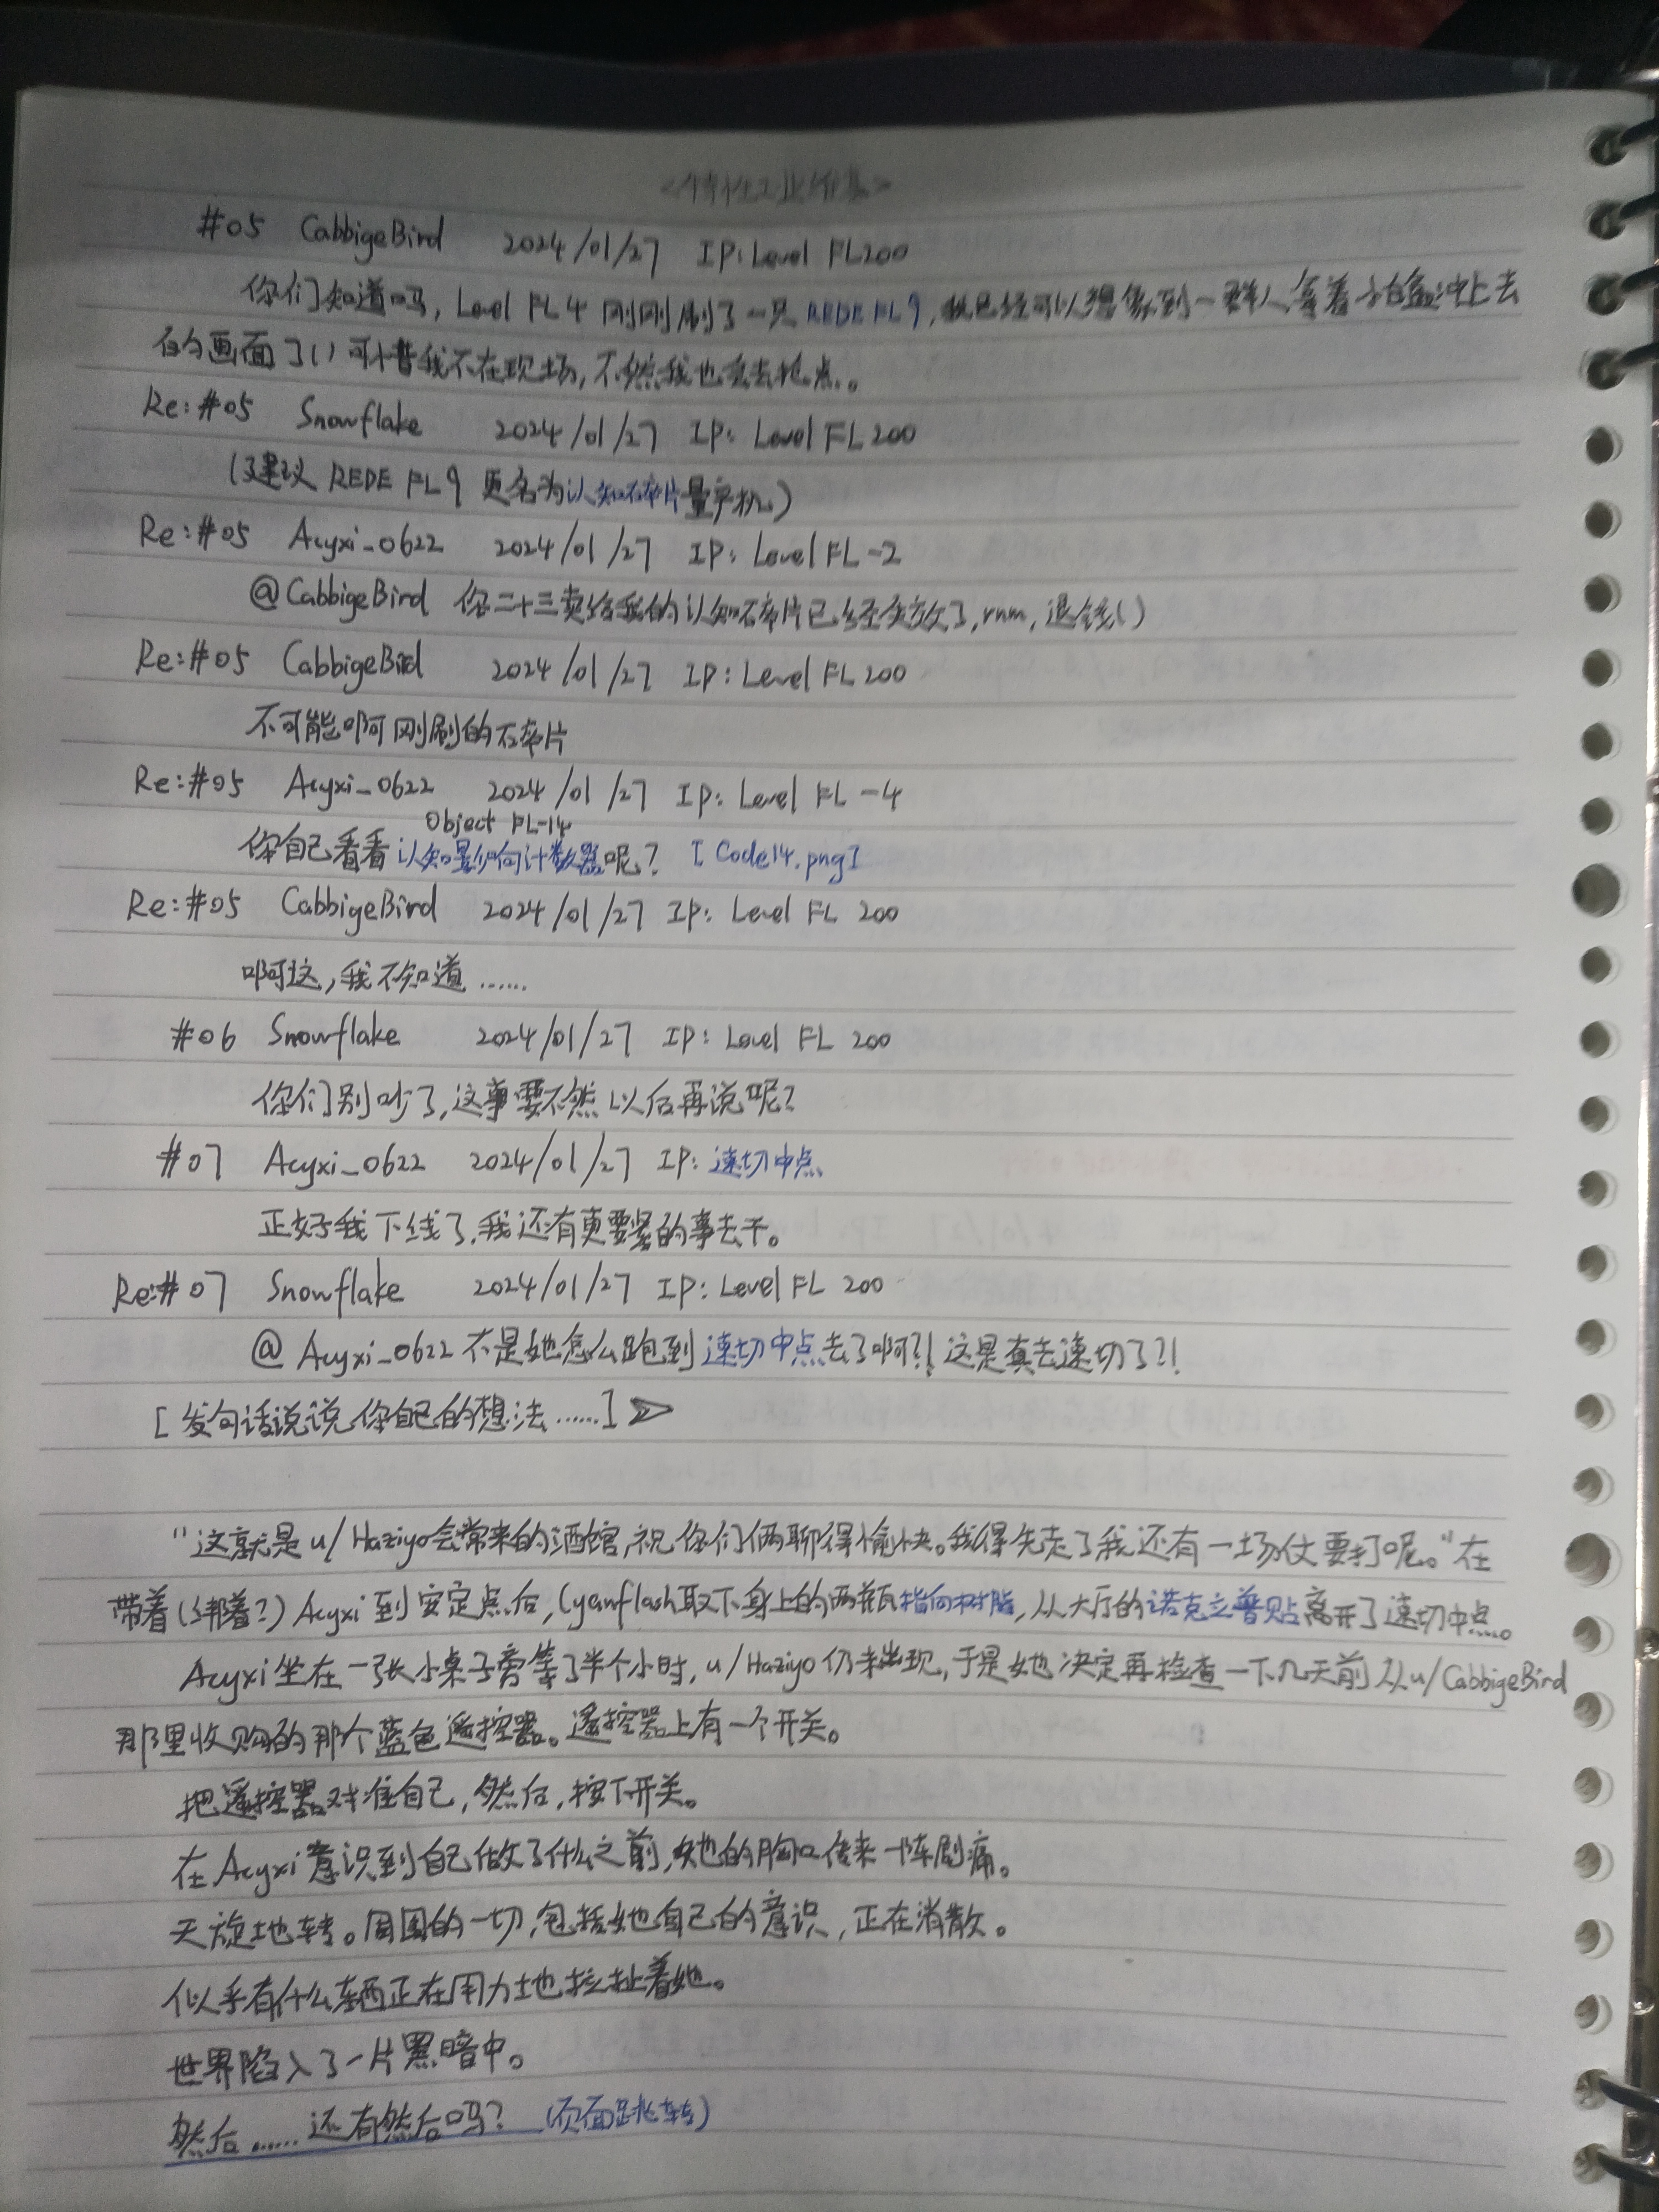 <特性工业维基>
#05 CabbigeBird 2024/01/27 IP:Level FL200
你们知道吗，Level FL4 刚刚刷了一只 REDE FL9，我已经可以想象到一群人拿着 冲上去
的画面了() 可惜我不在现场，不然我也要去抢点。
Re:#05 Snowflake 2024/01/27 IP: Level FL 200
(建议 REDE FL9 更名为认知碎片量产机。)
Re:#05 Acyxi_0622 2024/01/27 IP: Level FL-2
@CabbigeBird 你二十三卖给我的认知碎片已经失效了，rnm，退钱()
Re:#05 CabbigeBird 2024/01/27 IP: Level FL 200
不可能啊刚刷的碎片
Re:#05 Acyxi_0622 2024/01/27 IP: Level FL -4
Object FL-14
你自己看看认知影响计数器呢？ [Code14.png]
Re:#05 CabbigeBird 2024/01/27 IP: Level FL 200
啊这，我不知道……
#06 Snowflake 2024/01/27 IP: Level FL 200
你们别吵了，这事要不然以后再说呢？
#07 Acyxi_0622 2024/01/27 IP: 速切中点
正好我下线了，我还有更要紧的事去干。
Re:#07 Snowflake 2024/01/27 IP: Level FL 200
@Acyxi_0622 不是她怎么跑到速切中点去了啊?! 这是真去速切了?!
[发句话说说你自己的想法……] ➢
“这就是u/Haziyo会常来的酒馆，祝你们俩聊得愉快。我得先走了我还有一场仗要打呢。”在
带着(绑着？) Acyxi 到安定点后，Cyanflash取下身上的两瓶指向树脂，从大厅的诺克立普贴离开了速切中点。
Acyxi坐在一张小桌子旁等了半个小时，u/Haziyo仍未出现，于是她决定再检查一下几天前从u/CabbigeBird
那里收购的那个蓝色遥控器。遥控器上有一个开关。
把遥控器对准自己，然后，按下开关。
在Acyxi意识到自己做了什么之前，她的胸口传来一阵剧痛。
天旋地转。周围的一切，包括她自己的意识，正在消散。
似乎有什么东西正在用力地拉扯着她。
世界陷入了一片黑暗中。
然后……还有然后吗？(页面跳转)